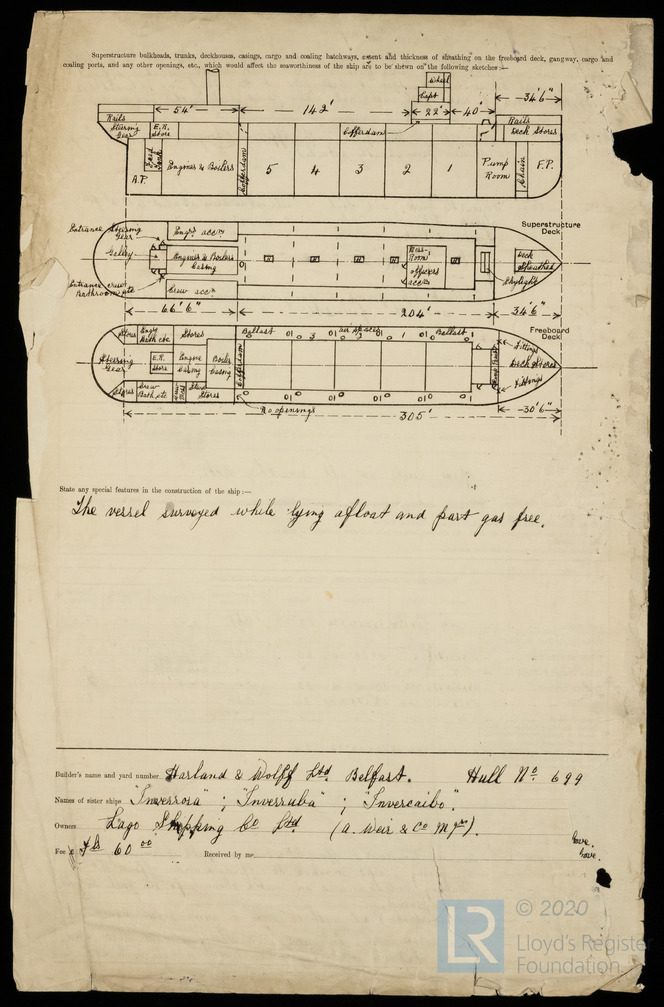 Superstructure bulkheads, trunks, deckhouses, casings, cargo and coaling hatchways, extent and thickness of sheathing on the freeboard deck, gangway, cargo and
coaling ports, and any other openings, etc., which would affect the seaworthiness of the ship are to be shewn on the following sketches:—
Wheel
Capt
34'6"
54' 142' 22' 40'
Rails Rails
Steering Gear E.R. Store Cofferdam Deck Stores
A.P. Engines & Boilers Cofferdam 5 4 3 2 1 Pump Room Chain F.P.
Superstructure Deck
Entrance Steering Gear Engrs accm
Galley Engines & Boilers Casing Mess-Room officers accm Deck Sheathed
Entrance crew Bathroom etc Crew accm Skylight
66'6" 204' 34'6"
Freeboard Deck
Stores Engrs Bath etc Stores Ballast air spaces Ballast Fittings
Steering Gear E.R. Store Engine Casing Boiler Casing Cofferdam Deck Stores
Stores Crew Bath etc Stores Fittings
No openings 30'6"
305'
State any special features in the construction of the ship:—
The vessel surveyed while lying afloat and part gas free.
Builder's name and yard number Harland & Wolff Ltd Belfast. Hull No 699
Names of sister ships "Inverrosa"; "Inverruba"; "Invercaibo".
Owners Lago Shipping Co Ltd (A. Weir & Co Mgrs).
Fee 60 00 Received by me
© 2020
LR Lloyd's Register
Foundation